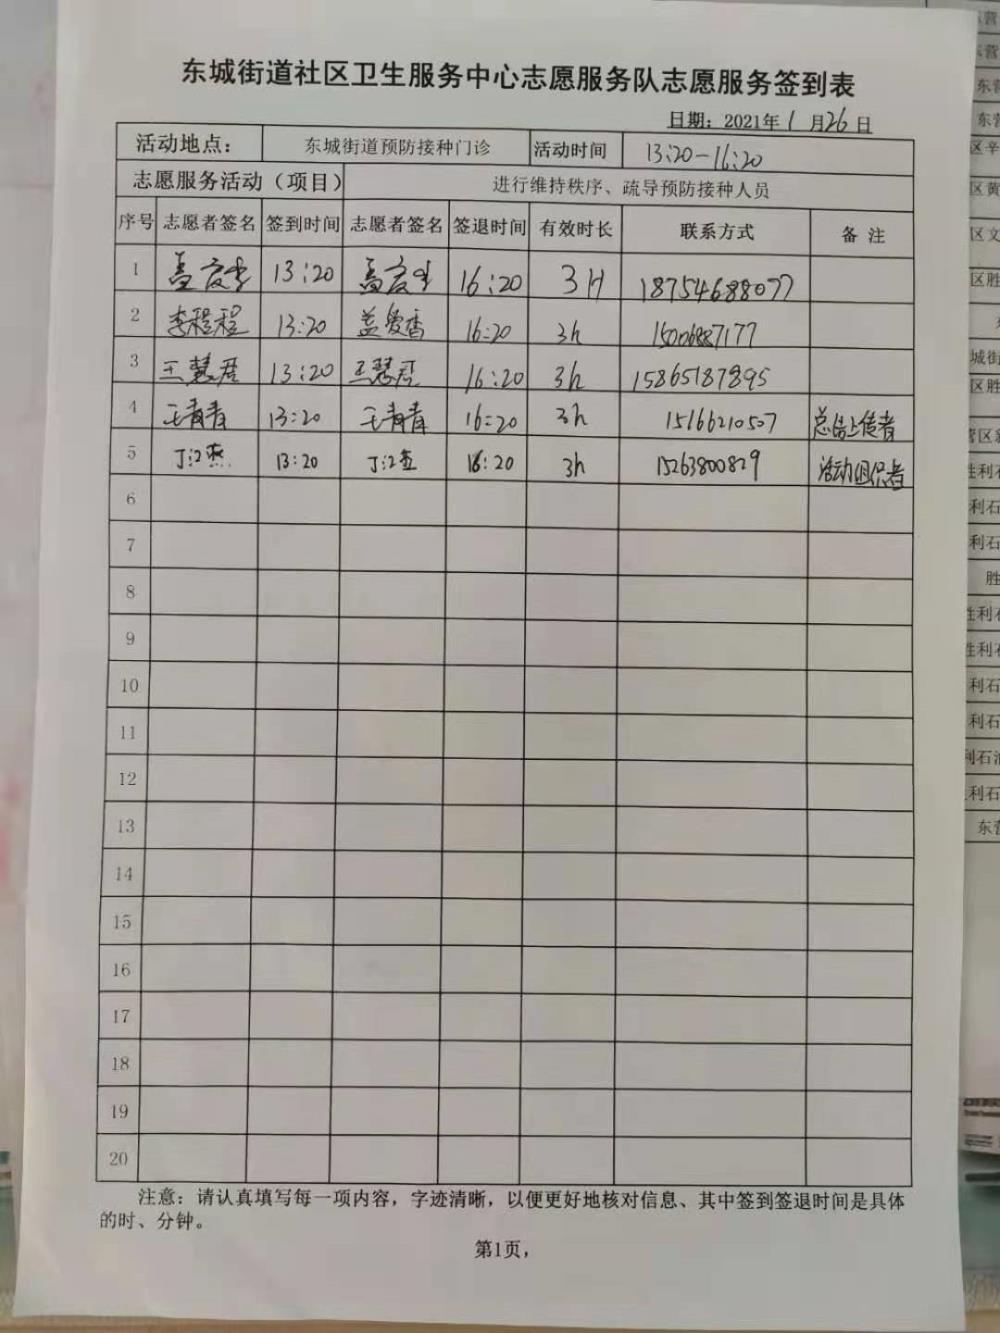 东城街道社区卫生服务中心志愿服务队志愿服务签到表
日期：2021年1月26日
活动地点： 东城街道预防接种门诊 活动时间 13:20-16:20
志愿服务活动（项目） 进行维持秩序、疏导预防接种人员
序号 志愿者签名 签到时间 志愿者签名 签退时间 有效时长 联系方式 备注
1 13:20 16:20 3H 18754688077
2 李程程 13:20 盖爱香 16:20 3h
3 王慧君 13:20 王慧君 16:20 3h 15865187895
4 王青青 13:20 王青青 16:20 3h 15166210507 总结上传者
5 丁江燕 13:20 丁江燕 16:20 3h 15263800829 活动组织者
6
7
8
9
10
11
12
13
14
15
16
17
18
19
20
注意：请认真填写每一项内容，字迹清晰，以便更好地核对信息、其中签到签退时间是具体
的时、分钟。
第1页，